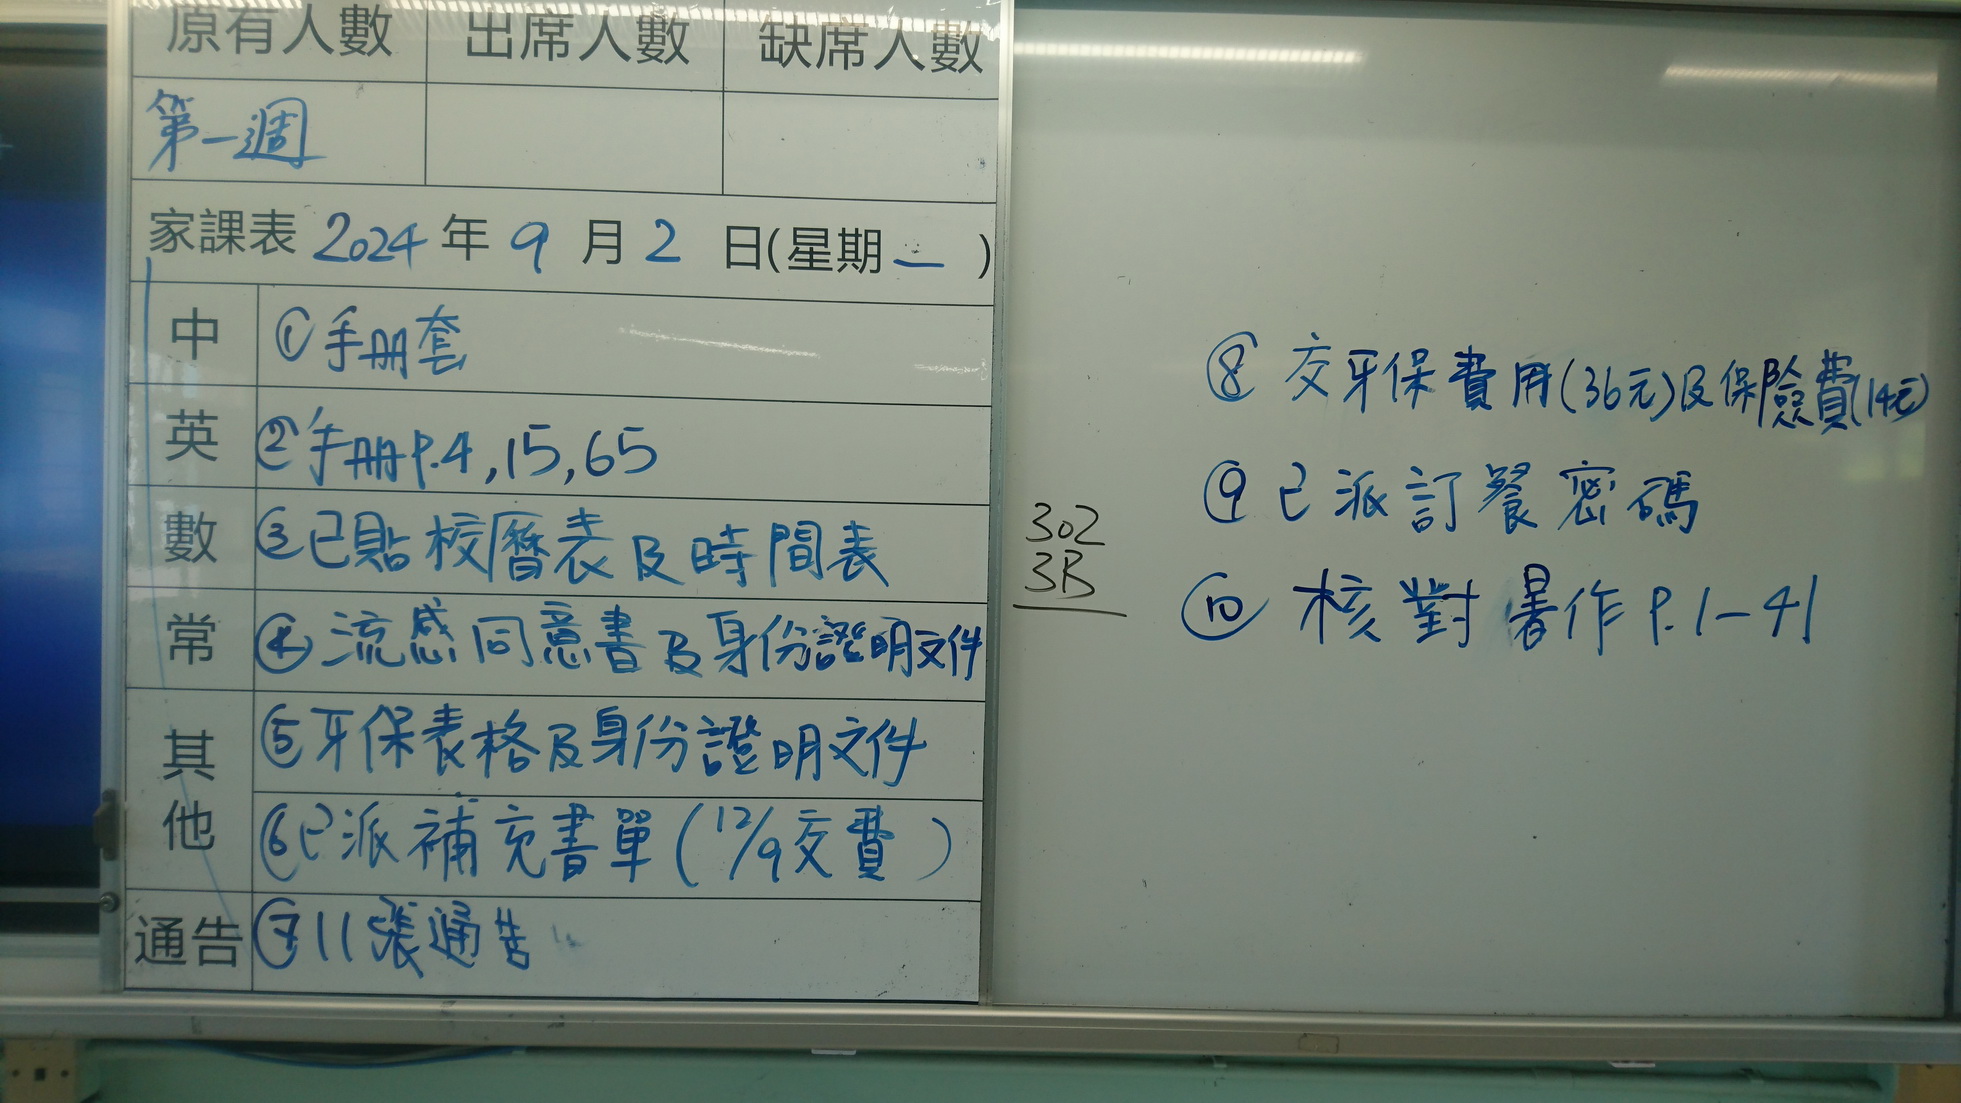 原有人數 出席人數 缺席人數
第一週
家課表 2024 年 9 月 2 日(星期一)
中 ①手冊套
英 ②手冊P.4,15,65
數 ③已貼校曆表及時間表
常 ④流感同意書及身份證明文件
其他 ⑤牙保表格及身份證明文件
⑥已派補充書單(12/9交費)
通告 ⑦11張通告
302
3B
⑧ 交牙保費用(36元)及保險費(14元)
⑨已派訂餐密碼
⑩ 核對暑作P.1-41